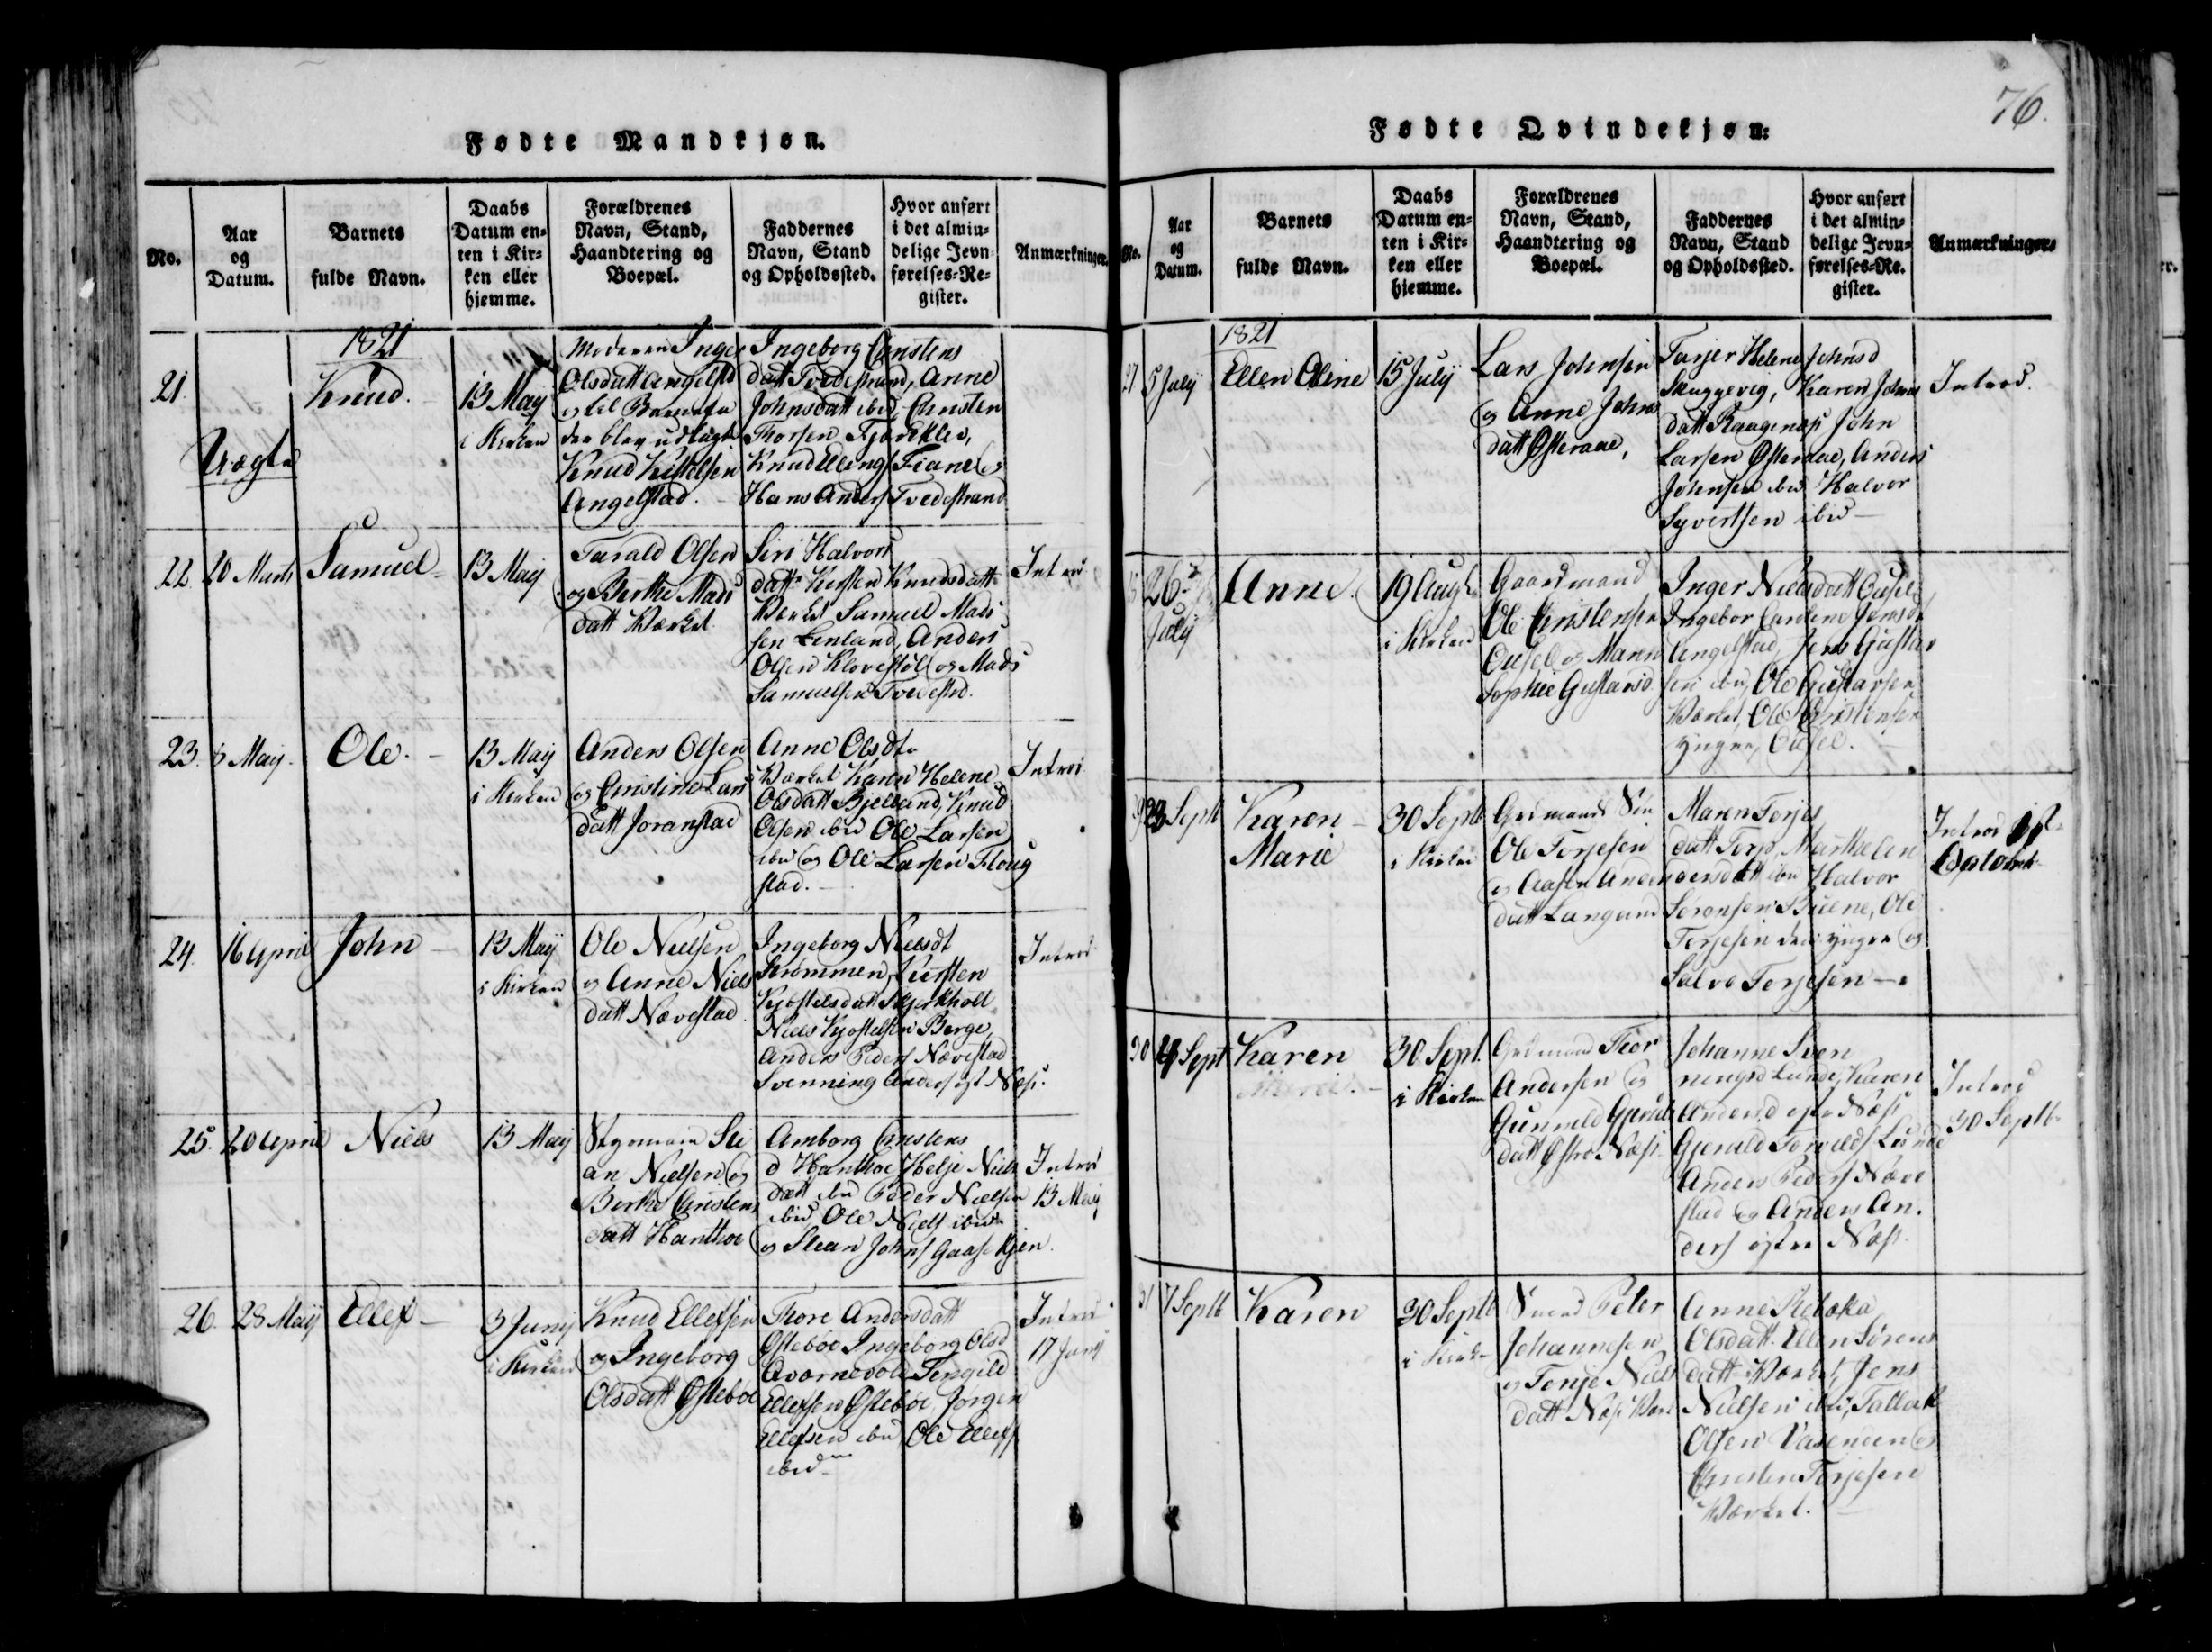 Fødte Mandkjøn.
No.
Aar
og
Datum.
Barnets
fulde Navn.
Daabs
Datum en-
ten i Kir-
ken eller
hjemme.
Forældrenes
Navn, Stand,
Haandtering og
Boepæl.
Faddernes
Navn, Stand
og Opholdssted.
Hvor anført
i det almin-
delige Jevn
førelses-Re-
gister.
Anmærkninger.
1821
21.
Uægte
Knud.
13 Maij
i Kirken
Moderen Inger
Olsdatt Angelstd
og til Barnefa
der blev udlagt
Knud
Angelstad.
Ingeborg Christens
datt Tvedestrand, Anne
Johnsdatt ibid, Christen
Thorsen
Knud Ellings Fiane og
Hans Anders Tvedestrand
22
20 Marts
Samuel
13 Maij
Tarald Olsen
og Berthe Mads
datt Værket
Siri Halvors
datt Kirsten Knudsdatt
Værket Samuel Mads
sen Lenland, Anders
Olsen Klovestøl og Mads
Samuelsen Tvedestrd.
Introd
23.
8 Maij.
Ole.
13 Maij
i Kirken
Anders Olsen
og Christine Lars
datt Joranstad
Anne Olsdtr
Værket Karen Helene
Olsdatt Bjelland, Knud
Olsen ibid Ole Larsen
ibid og Ole Larsen Floug
stad.
Introd
24.
16 April
John
13 Maij
i Kirken
Ole Nielsen
og Anne Niels
datt Nævestad
Ingeborg Nielsdt
Strømmen, Kirsten
Kjøstelsdatt Skjerkholt
Niels Kjøstelsen Berge,
Anders Peders Nævestad
Svenning Anders øst Næs.
Introd
25.
20 April
Niels
13 Maij
Ste
an Nielsen og
Berthe Christens
datt Hanthoe
Amborg Christens
d Hanthoe Helje Niels
datt ibid Peder Nielsen
ibid Ole Niels ibid
og Stean Johns
Introd
13 Maij
26.
28 Maij
Ellef
3 Junij
i Kirken
Knud Ellefsen
og Ingeborg
Olsdatt Østebøe
Thore Andersdatt
Østebøe Ingeborg Olsd
Qvarnevole Tengild
Ellefsen Østebøe, Jørgen
Ellefsen ibid, Ole Ellefs
ibid
Introd
17 Junij
76.
Fødte Qvindekjøn:
No.
Aar
og
Datum.
Barnets
fulde Navn.
Daabs
Datum en-
ten i Kir-
ken eller
hjemme.
Forældrenes
Navn, Stand,
Haandtering og
Boepæl.
Faddernes
Navn, Stand
og Opholdssted.
Hvor anført
i det almin-
delige Jevn-
førelses-Re.
gister.
Anmærkninger.
1821
27
5 July
Ellen Oline
15 July
Lars Johnsen
og Anne Johns
datt Østeraae,
Helene Johnsd
Skuggevig, Karen Johns
datt Raagenæs John
Larsen Østeraae, Anders
Johnsen ibid Halvor
Syvertsen ibid
Introd.
26
July
Anne.
19 Aug
i Kirken
Gaardmand
Ole Christensen
Ousel og Maren
Sophie Gustavsd.
Inger Nielsdatt Ousel
Ingebor Cardene Jensd.
Angelstad, Jens Gustav
sen ibid, Ole Gustavsen
Værket, Ole Christensen
yngre, Ousel.
23 Septb
Karen
Marie
30 Septb
i Kirken
Ole Torjesen
datt Langand
Maren Torjes
datt Torp,
dersdatt ibid Halvor
Sørensen Buene, Ole
Torjesen den yngre og
Salve Torjesen
Introd
30
Sept
Karen
30 Sept.
i Kirken
Andersen og
Gunnild
datt Østre Næs.
Johanne Sven
ningsd Lunde, Karen
Andersd østre Næs
Gjeruld Torvilds Lunde
Anders Peders Næve
stad og Anders An.
ders østre Næs.
Introd
30 Septb
31
7 Septb
Karen
30 Septb
i Kirken
Peter
Johannesen
og Torje Niels
datt Næs
Anne Rebeka
Olsdatt. Ellen Sørens
datt Værket, Jens
Nielsen ibd, Tallak
Olsen Vaseneen og
Christen Torjesen
Værket.